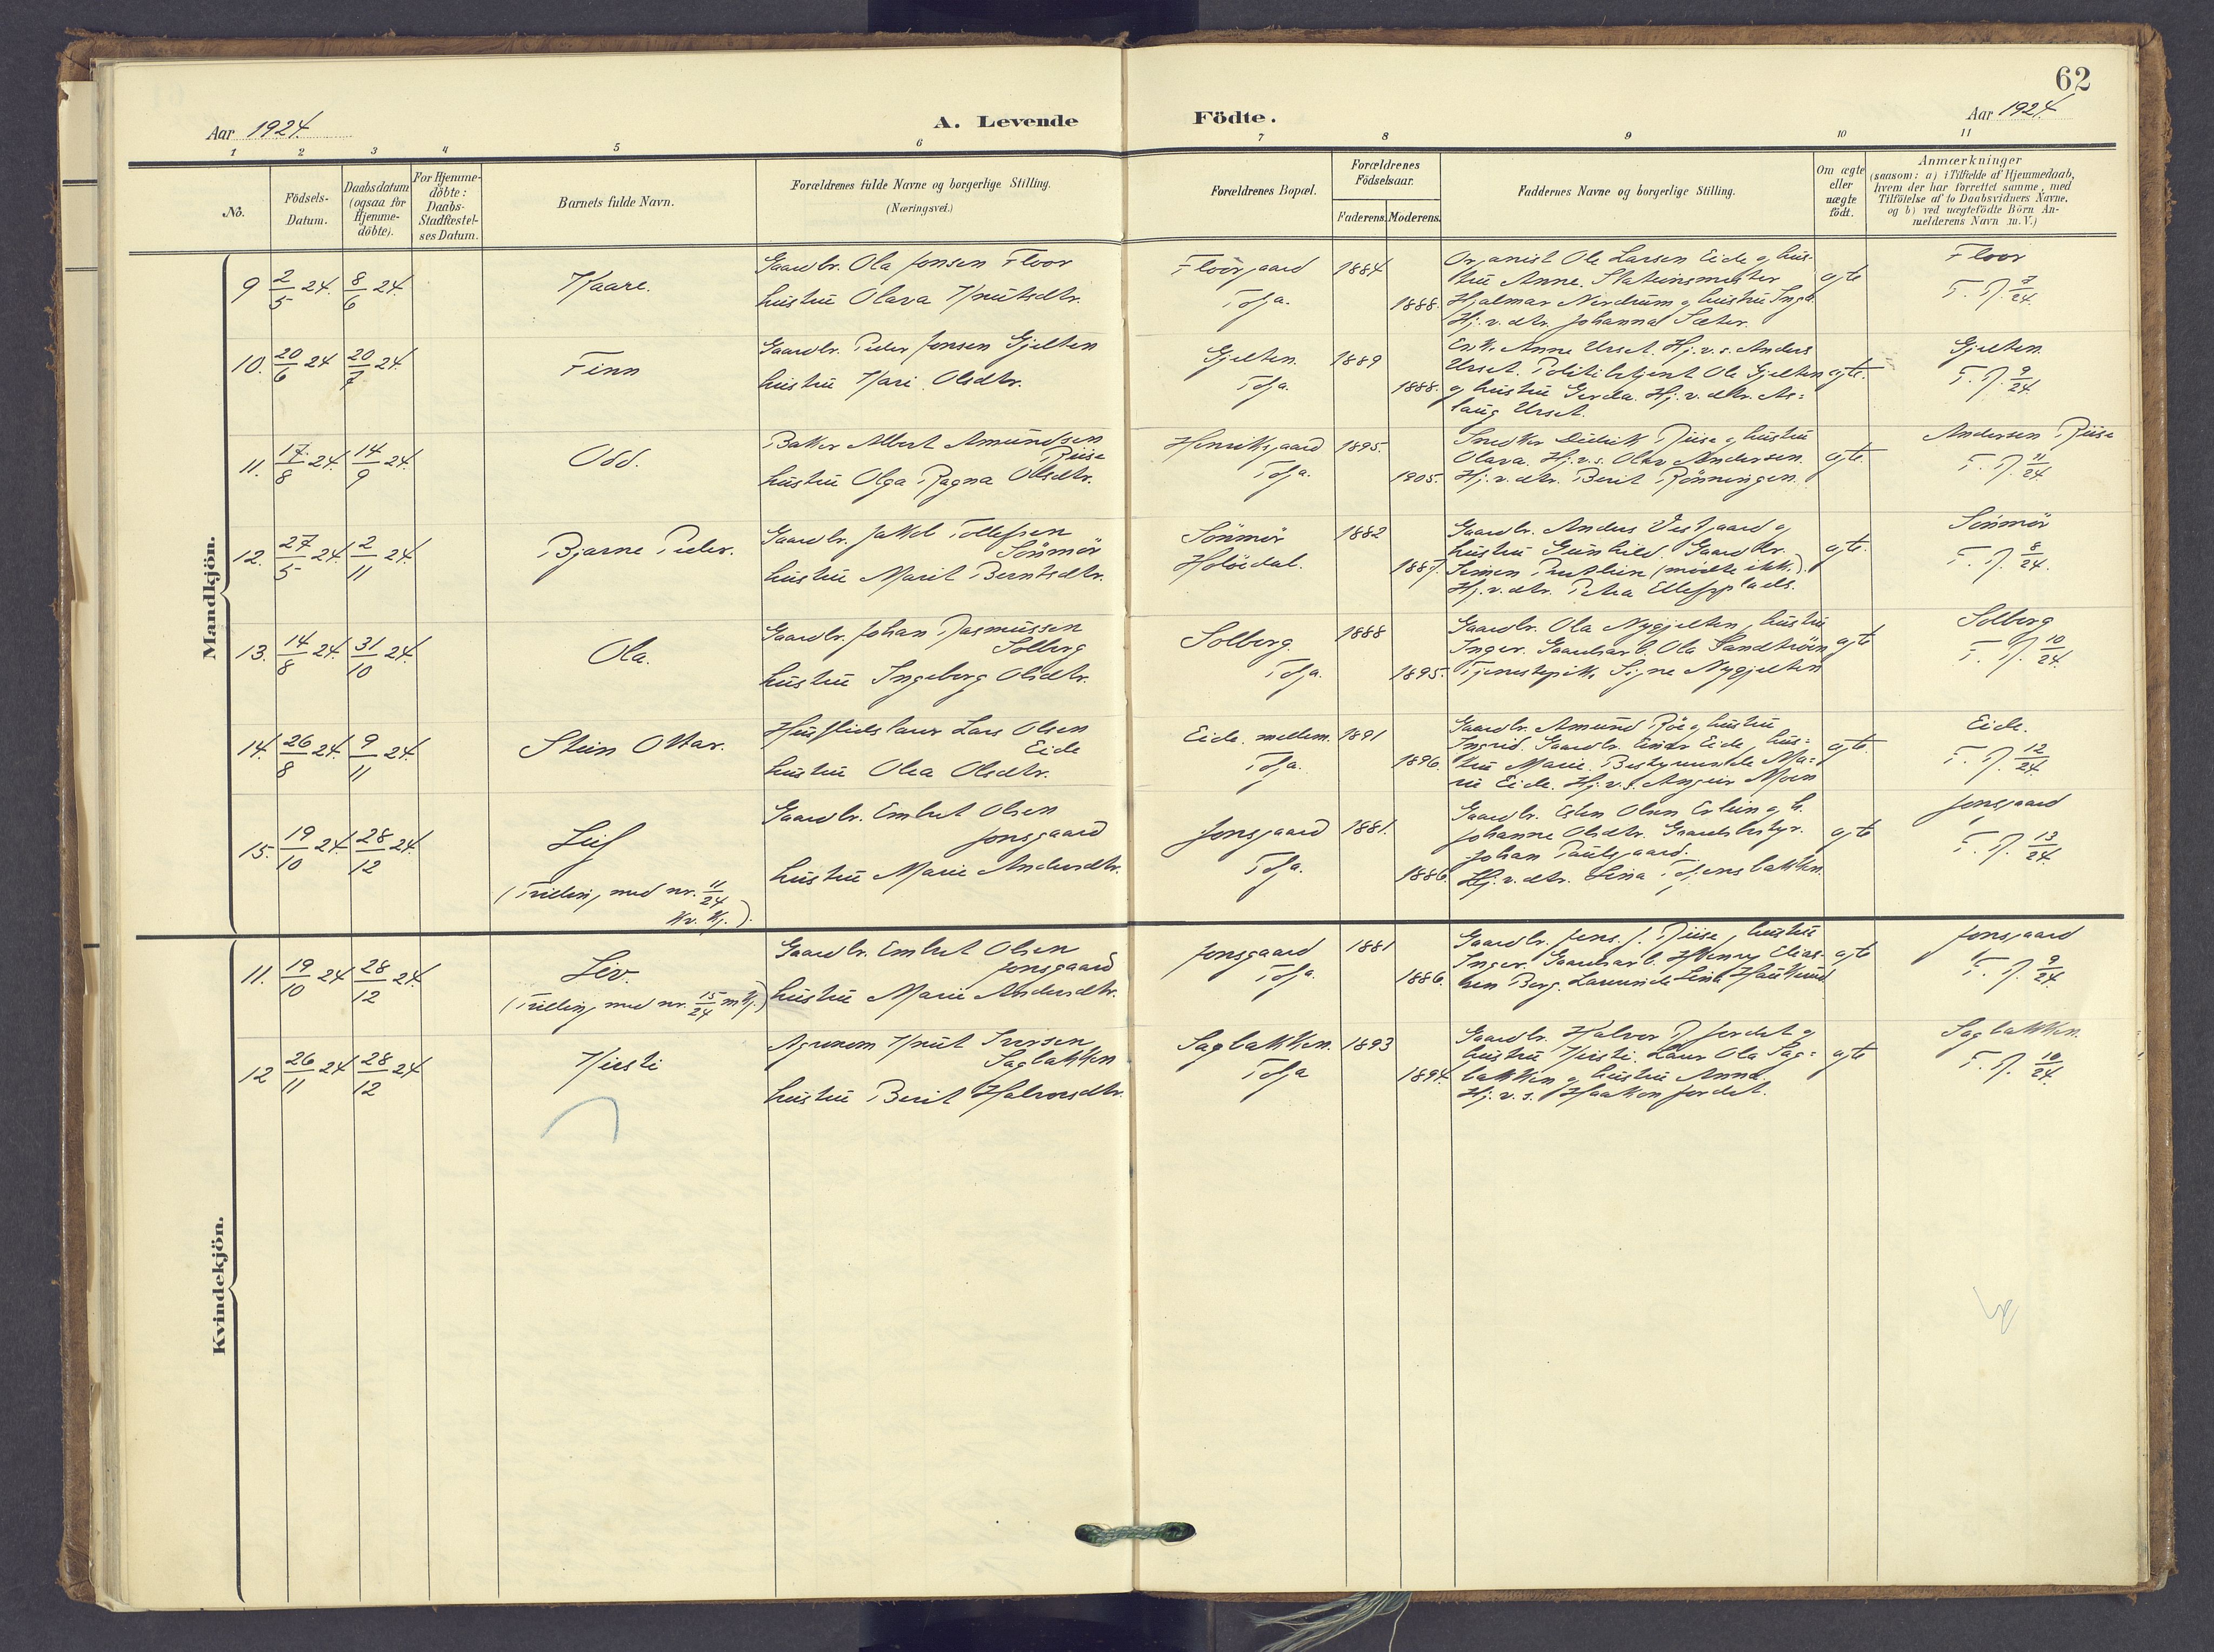 62
Aar 1924.
A. Levende Födte.
Aar 1924.
1 2 3 4 5 6 7 8 9 10 11
No.
Födsels-Datum.
Daabsdatum (ogsaa for Hjemme-döbte).
For Hjemme-döbte: Daabs-Stadfæstel-ses Datum.
Barnets fulde Navn.
Forældrenes fulde Navne og borgerlige Stilling.
(Næringsvei.)
Forældrenes Bopæl.
Forældrenes Födselsaar.
Faderens. Moderens.
Faddernes Navne og borgerlige Stilling.
Om ægte eller uægte födt.
Anmærkninger
(saasom: a) i Tilfælde af Hjemmedaab,
hvem der har forrettet samme, med
Tilföielse af to Daabsvidners Navne,
og b) ved uægtefödte Börn An-
melderens Navn m. V.)
Mandkjön.
9 2/5 24. 8/6 24.
Kaare.
Gaardbr. Ola Jonsen Floor
hustru Olava Knutsdtr.
Floorgaard
Tolga.
1884
1888.
Organist Ole Larsen Eide og hus-
tru Anne. Stationsmester
Hjalmar Nordrum og hustru Inga.
Hj. v. dtr. Johanna Sæter.
egte
Floor
T. R. 7/24.
10. 20/6 24 20/7 24.
Finn
Gaardbr. Peder Jonsen Gjelten
hustru Kari Olsdtr.
Gjelten.
Tolga.
1889
1888.
Enke Anne Urset. Hj. v. s. Anders
Urset. Politibetjent Ole Gjelten
og hustru Gerda. Hj. v. dtr. As=
laug Urset.
egte.
Gjelten.
T. R. 9/24
11. 17/8 24. 14/9 24.
Odd.
Baker Albert Amundsen
Riise
hustru Olga Ragna Olsdtr.
Henriksgaard
Tolga.
1895.
1905.
Snedker Didrik Riise og hustru
Olava. Hj. v. s. Olav Andersen.
Hj. v. dtr. Berit Rönningen.
egte.
Andersen Riise
T. R. 11/24
12. 27/5 24. 2/11 24.
Bjarne Peder.
Gaardbr. Jakob Tollefsen
Sömmör
hustru Marit Berntsdtr.
Sömmör
Holöidal.
1882
1887.
Gaardbr. Anders Vestgaard og
hustru Gunhild. Gaardbr.
Simen (mödte ikke).
Hj. v. dtr. Petra Ellefsplads.
egte.
Sömmör
T. R. 8/24.
13. 14/8 24. 31/10 24.
Ola.
Gaardbr. Johan Rasmussen
Solberg
hustru Ingeborg Olsdtr.
Solberg.
Tolga.
1888
1895.
Gaardbr. Ola Nygjelten, hustru
Inger. Gaardsarb. Ole Sandtröen
Tjenestepike Signe Nygjelten
egte
Solberg
T. R. 10/24.
14. 26/8 24. 9/11 24.
Stein Ottar.
Husflidslærer Lars Olsen
Eide
hustru Olea Olsdtr.
Eide. mellem.
Tolga.
1891
1896.
Gaardbr. Amund Röe og hustru
Ingrid. Gaardbr. Einar Eide, hus=
tru Marie. Bestyrerinde Ma=
rie Eide. Hj. v. s. Moen
egte.
Eide.
T. R. 12/24.
15. 19/10 24. 28/12 24.
Leif
(Trilling med nr. 11/24
kv. kj.).
Gaardbr. Embret Olsen
Jonsgaard
hustru Marie Andersdtr.
Jonsgaard
Tolga.
1881.
1886.
Gaardbr. Esten Olsen Erlien og h.
Johanne Olsdtr. Gaardbestyr.
Johan Paulsgaard.
Hj. v. dtr. Lina Tolgensbakken.
egte
Jonsgaard
T. R. 13/24.
Kvindekjön.
11. 19/10 24 28/12 24.
Liv.
(Trilling med nr. 15/24 m. kj.)
Gaardbr. Embret Olsen
Jonsgaard
hustru Marie Andersdtr.
Jonsgaard
Tolga.
1881
1886.
Gaardbr. Jens J. Riise, hustru
Inger. Gaardsarb. Henry Elias-
sen Berg. Lærerinde Lina
egte
Jonsgaard
T. R. 9/24.
12 26/11 24 28/12 24
Kirsti
Agronom Knut Iversen
Sagbakken
hustru Berit Halvorsdtr.
Sagbakken.
Tolga
1893
1894.
Gaardbr. Halvor R. Jordet og
hustru Kirsti. Lærer Ola Sag=
bakken og hustru Anna.
Hj. v. s. Haakon Jordet.
egte
Sagbakken.
T. R. 10/24.